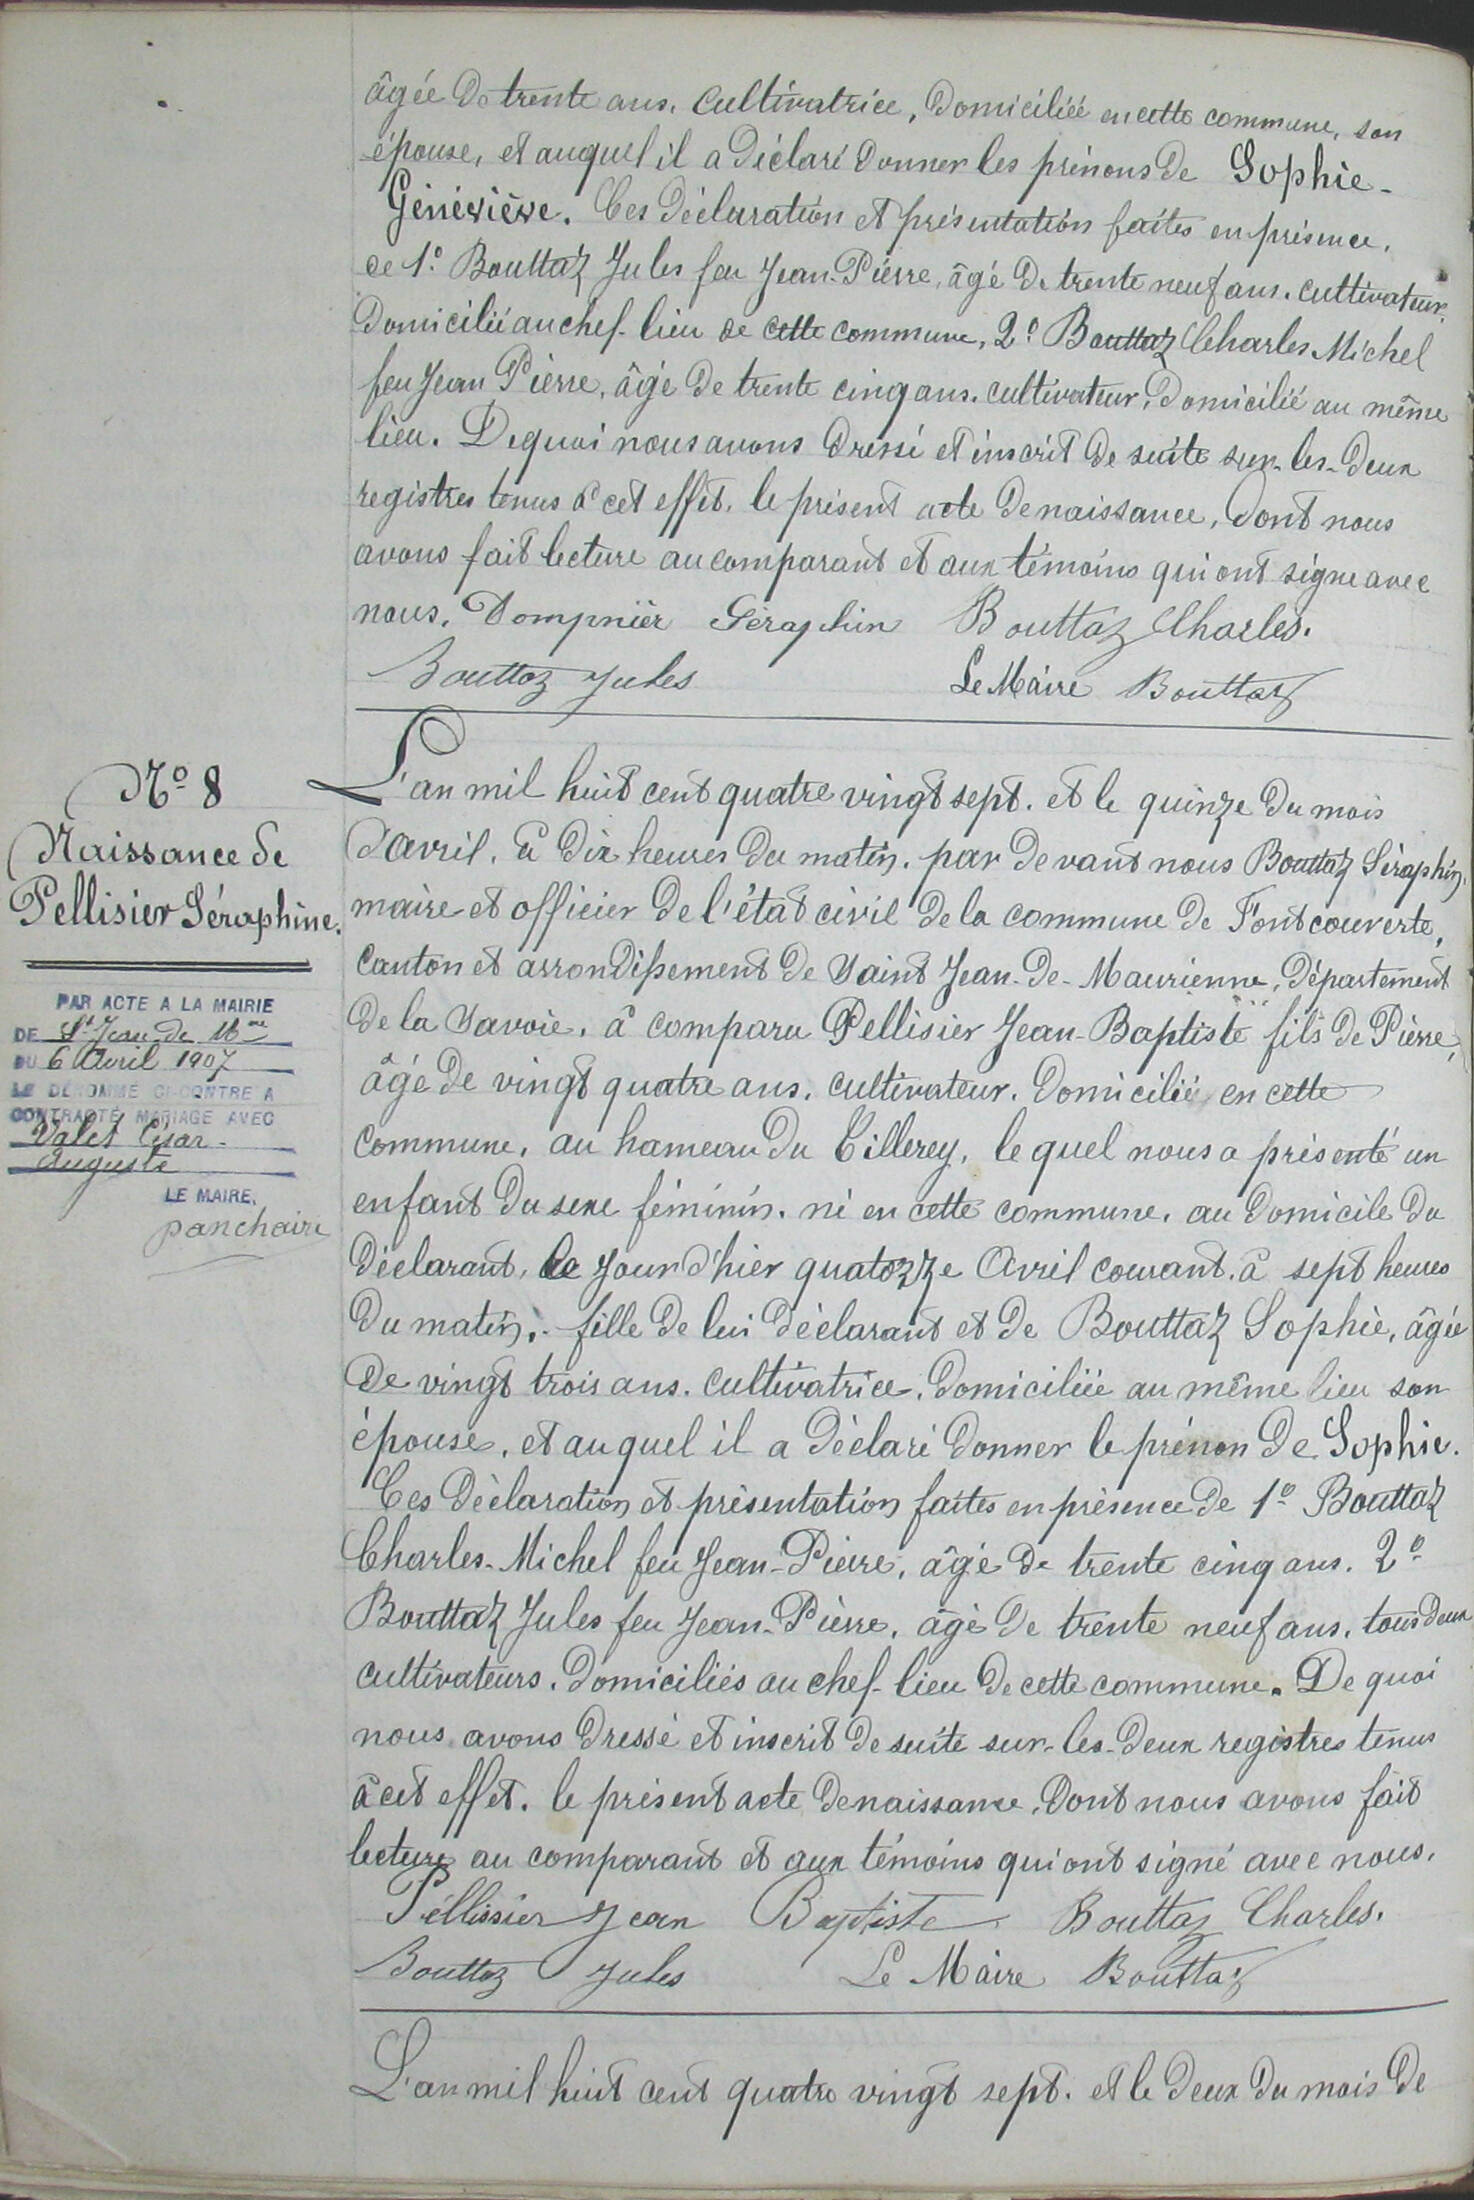 âgée de trente ans. cultivatrice, domiciliée en cette commune, son
épouse, et auquel il a déclaré donner les prénons de Sophie-
Généviève. Ces déclaration et présentation faites en présence,
de 1º Bouttaz Jules feu Jean-Pierre, âgé de trente neuf ans. cultivateur,
domicilié au chef-lieu de cette commune, 2º Bouttaz Charles Michel
feu Jean Pierre, âgé de trente cinq ans. cultivateur, domicilié au même
lieu. De quoi nous avons dressé et inscrit de suite sur-les-deux
registres tenus à cet effet, le présent acte de naissance, dont nous
avons fait lecture au comparant et aux témoins qui ont signé avec
nous. Dompnier Séraphin Bouttaz Charles.
Bouttaz Jules Le Maire Bouttaz
Nº 8
Naissance de
Pellisier Séraphine.
PAR ACTE A LA MAIRIE
DE St Jean de Mne
DU 6 Avril 1907
LE DÉNOMMÉ CI-CONTRE A
CONTRACTÉ MARIAGE AVEC
Valet César-
Auguste
LE MAIRE,
L'an mil huit cent quatre vingt sept. et le quinze du mois
d'avril, à dix heures du matin. par devant nous Bouttaz Séraphin,
maire et officier de l'état civil de la commune de Fontcouverte,
canton et arrondissement de Saint Jean-de-Maurienne, département
de la Savoie. à comparu Pellisier Jean-Baptiste fils de Pierre,
âgé de vingt quatre ans. cultivateur. domicilié en cette
commune, au hameau du Villerey, le quel nous a présenté un
enfant du sexe féminin. né en cette commune, au domicile du
déclarant, le jour d'hier quatozze Avril courant. à sept heures
du matin. fille de lui déclarant et de Bouttaz Sophie, âgée
de vingt trois ans. cultivatrice, domiciliée au même lieu son
épouse, et au quel il a déclaré donner le prénon de Sophie.
Ces déclaration et présentation faites en présence de 1º Bouttaz
Charles-Michel feu Jean-Pierre, âgé de trente cinq ans. 2º
Bouttaz Jules feu Jean-Pierre, âgé de trente neuf ans, tous deux
cultivateurs. domiciliés au chef-lieu de cette commune. De quoi
nous avons dressé et inscrit de suite sur-les-deux registres tenus
à cet effet. le présent acte de naissance, dont nous avons fait
lecture au comparant et aux témoins qui ont signé avec nous.
Péllissier Jean Baptiste Bouttaz Charles.
Bouttaz Jules Le Maire Bouttaz
L'an mil huit cent quatre vingt sept. et le deux du mois de